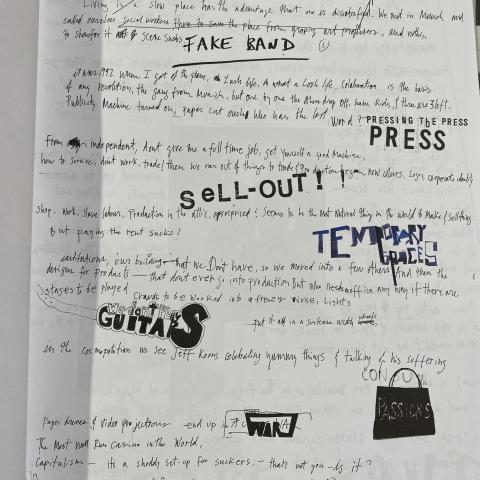 Living in a slow place has the advantage that one is dissatisfied. We met in Munich, and
called ourselves social workers there to save the place from groping art professors, and rather
to transfer it scene sucks
FAKE BAND
it was 1992 when I got off the plane, a Lush life, o what a Lush life, collaboration is the basis
of any revolution, the gang from Munich, but one by one the others drop off, have kids, & there are 3 left.
Publicity Machine turned on, paper cut outs who has the last
Word? PRESSING the PRESS
PRESS
From independent, dont give me a full time job, get yourself a good Machine,
how to survive, dont work, trade! then we ran out of things to trade & production began, new colours, Logos corporate identity
SeLL-OUT!!
shop, work, slave labour, Production in the attic, appropriced! Seems to be the most Natural thing in the world to make & sell things
But paying the rent sucks!
TEMPORARY
SPACES
institutions, our building that we Dont have, so we moved into a few others and then the
designs for products — that dont ever go into production but who needs office any way if there are
stages to be played
Crowds to be worked into a frenzy wine, Lights
We don't Play
GUITARS
put it all in a suitcase with wheels
in the cosmopolitan we see Jeff Koons celebrating yummy things & talking of his suffering
CON
PASSIONS
Paper dresses & video projections end up
WAR
The Most well Run casino in the World,
Capitalism — its a shoddy set-up for suckers, — thats not you — is it?